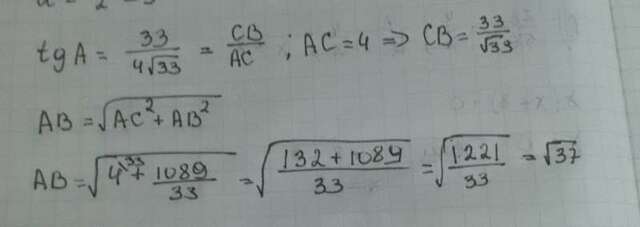 tg A = 33/(4√33) = CB/AC ; AC = 4 => CB = 33/√33
AB = √(AC² + AB²)
AB = √(4^33 + 1089/33) = √((132 + 1089)/33) = √(1221/33) = √37